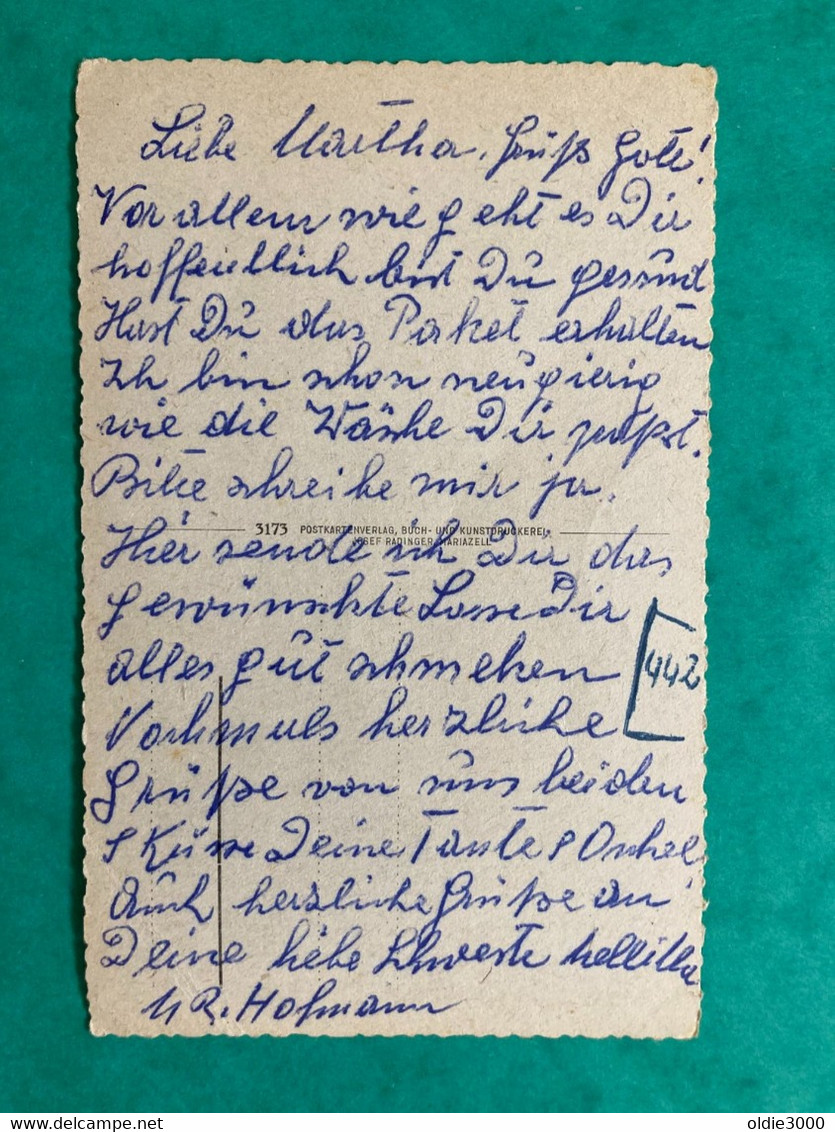 Liebe Martha. Grüß Gott!
Vor allem wie geht es Dir
hoffentllich bist Du gesund
Hast Du das Paket erhalten
Ich bin schon neugierig
wie die Wäshe Dir paßt.
Bitte schreibe mir ja.
3173 POSTKARTENVERLAG, BUCH- UND KUNSTDRUCKEREI
JOSEF RADINGER, MARIAZELL
Hier sende ich Dir das
gewünschte Lasse Dir
alles gut schmeken
442
Nochmals herzliche
Grüße von uns beiden
Küsse Deine Tante & Onkel
Auch herzliche Grüße an
Deine liebe Schweste Mellitta
R. Hofmann
oldie3000